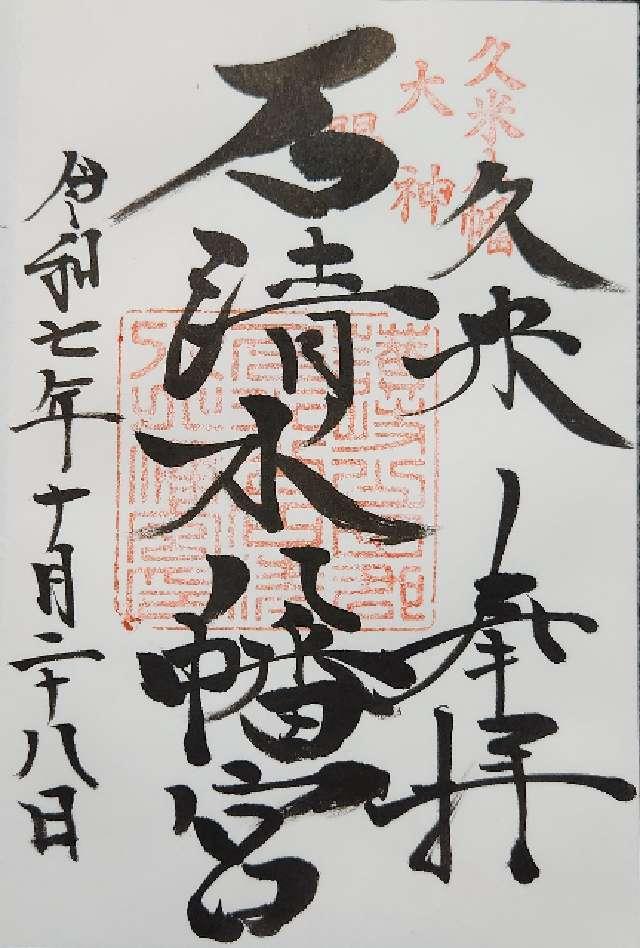 久米八幡
大神
久米 奉拝
石清水八幡宮
令和七年十月二十八日